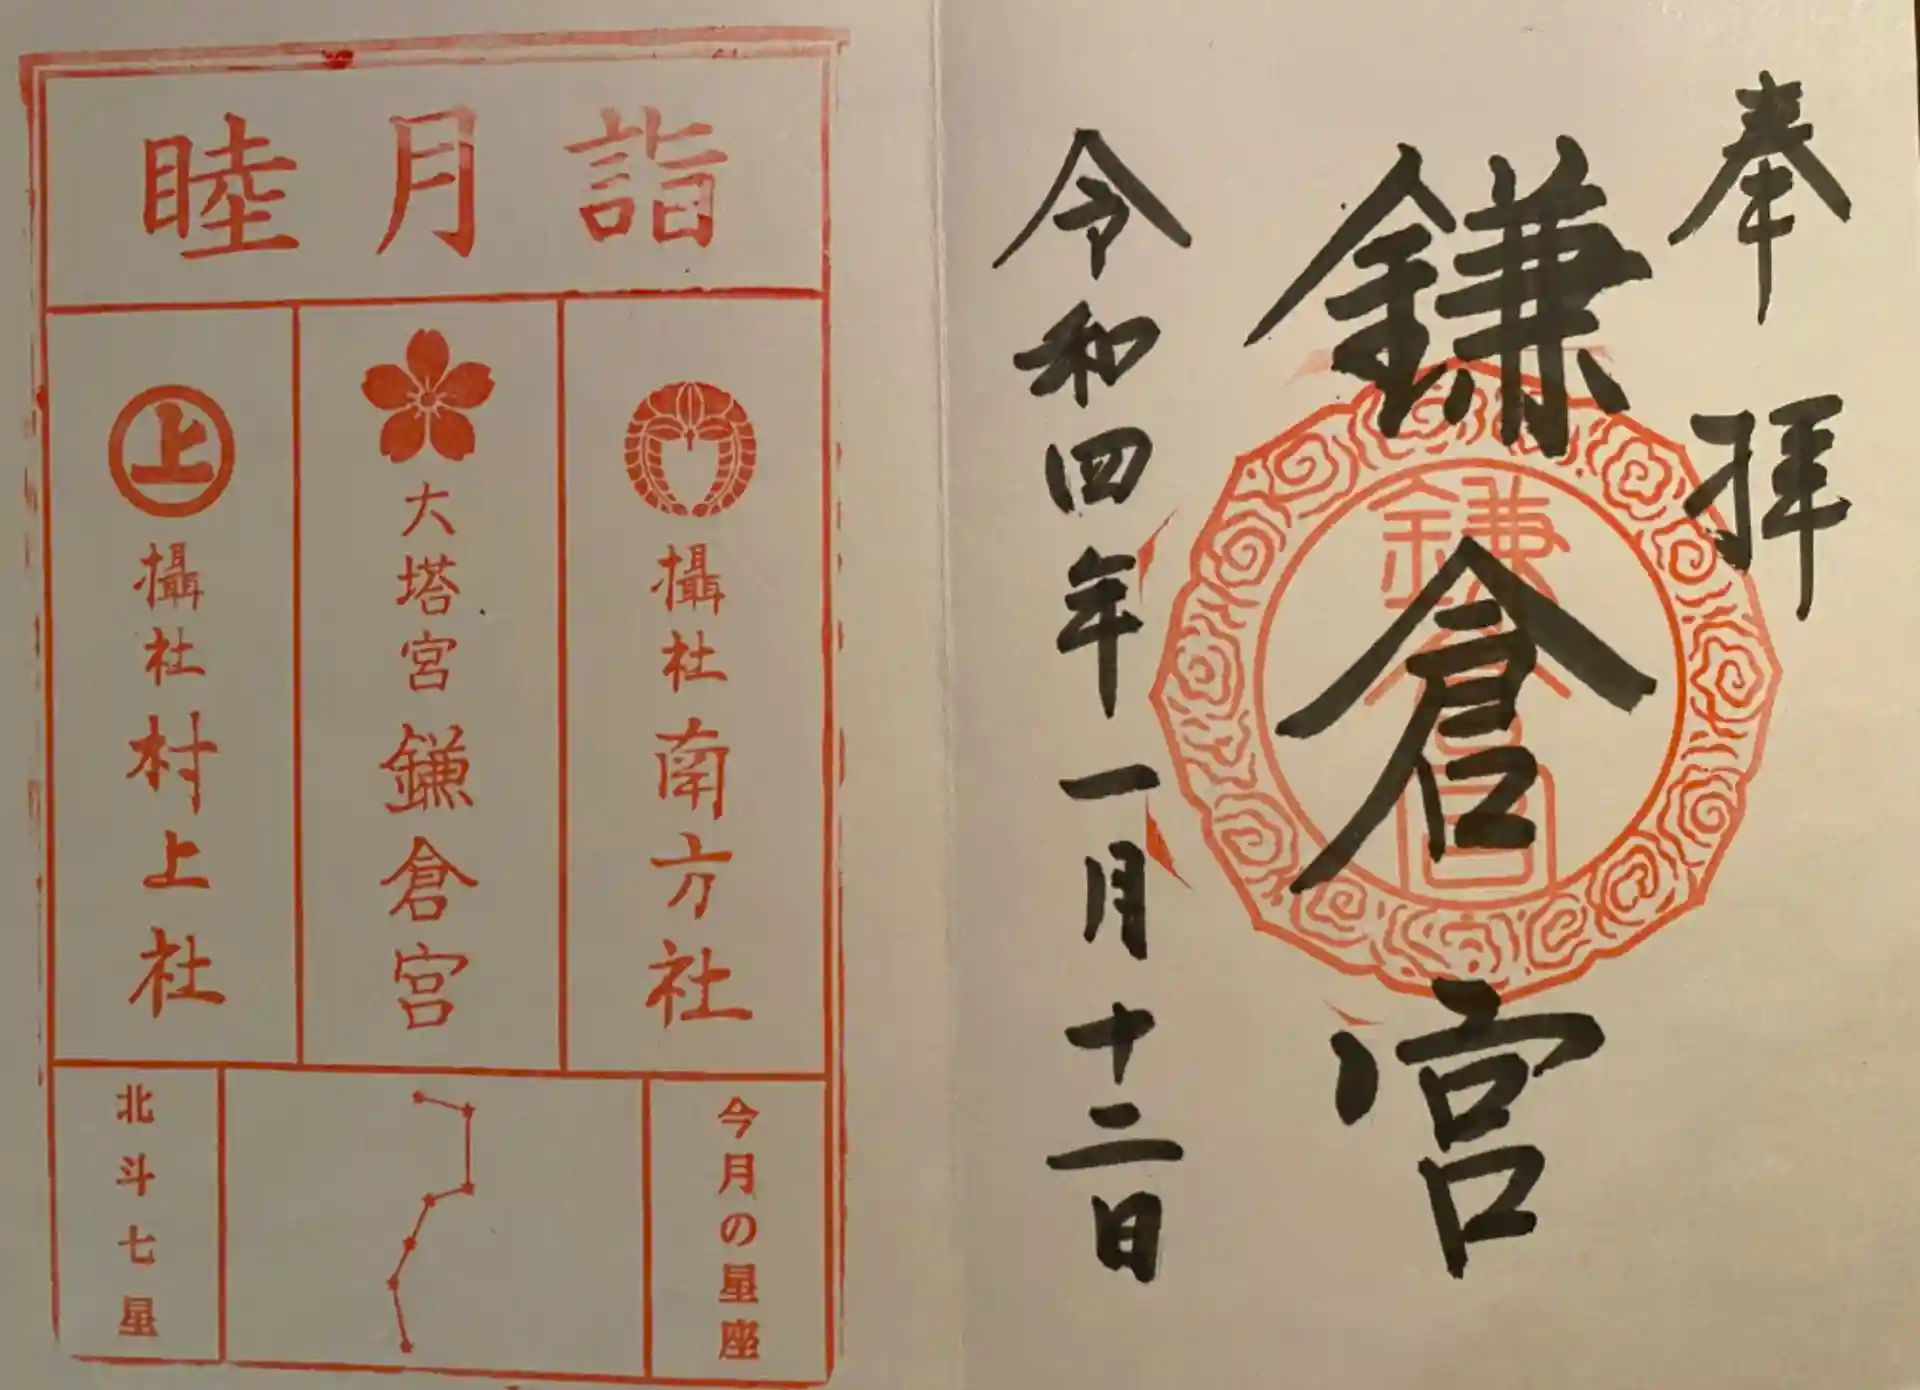 奉拝
鎌倉宮
鎌倉宮
令和四年一月十二日
睦月詣
攝社南方社
大塔宮鎌倉宮
上
攝社村上社
今月の星座
北斗七星